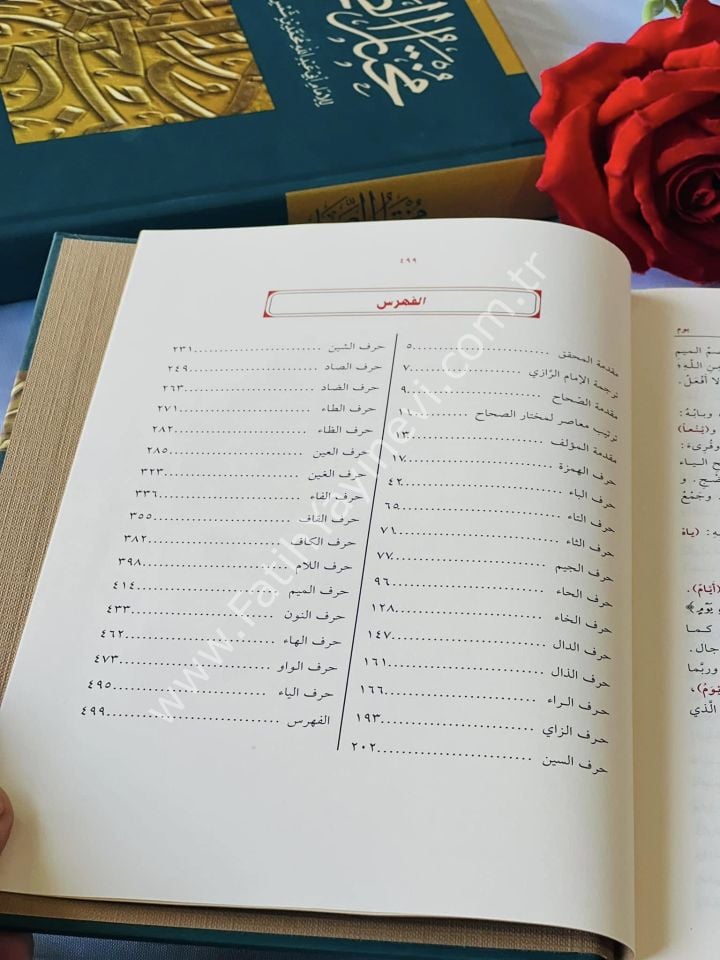 مختار
للإمام
٤٩٩
الفهرس
مقدمة المحقق ........ ٥
ترجمة الإمام الرَّازي ........ ٧
مقدمة الصّحاح ........ ٩
ترتيب معاصر لمختار الصحاح ........ ١١
مقدمة المؤلف ........ ١٣
حرف الهمزة ........ ١٧
حرف الباء ........ ٤٢
حرف التاء ........ ٦٥
حرف الثاء ........ ٧١
حرف الجيم ........ ٧٧
حرف الحاء ........ ٩٦
حرف الخاء ........ ١٢٨
حرف الدال ........ ١٤٧
حرف الذال ........ ١٦١
حرف الراء ........ ١٦٦
حرف الزاي ........ ١٩٣
حرف السين ........ ٢٠٢
حرف الشين ........ ٢٣١
حرف الصاد ........ ٢٤٩
حرف الضاد ........ ٢٦٣
حرف الطاء ........ ٢٧١
حرف الظاء ........ ٢٨٢
حرف العين ........ ٢٨٥
حرف الغين ........ ٣٢٣
حرف الفاء ........ ٣٣٦
حرف القاف ........ ٣٥٥
حرف الكاف ........ ٣٨٢
حرف اللام ........ ٣٩٨
حرف الميم ........ ٤١٤
حرف النون ........ ٤٣٣
حرف الهاء ........ ٤٦٢
حرف الواو ........ ٤٧٣
حرف الياء ........ ٤٩٥
الفهرس ........ ٤٩٩
يوم
الميم
الله
أفعل.
وبابُهُ:
و(يَنْعاً)
وقُرِىءَ:
الياء
وجَمْعُ
(ياهْ
(أيّام).
يَوْمٍ﴾
كما
جال.
وربّما
يَوْمُ)،
الَّذي
www.FatihYayinevi.com.tr